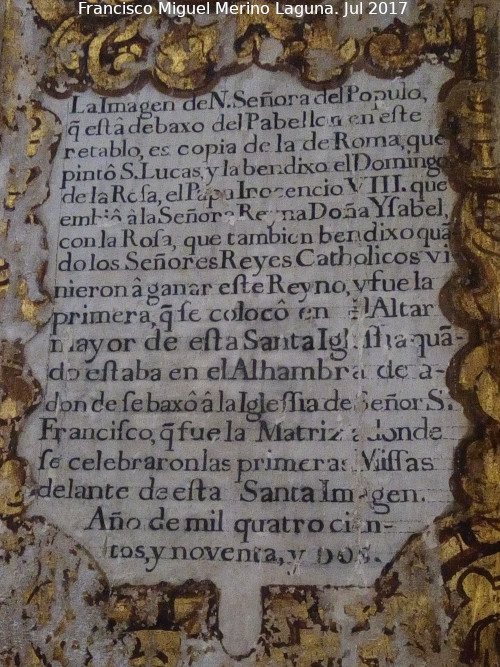 Francisco Miguel Merino Laguna. Jul 2017
La Imagen de N. Señora del Populo,
q̃ està debaxo del Pabellon en este
retablo, es copia de la de Roma, que
pintò S. Lucas, y la bendixo el Domingo
de la Rosa, el Papa Inocencio VIII. que
embiô â la Señora Reyna Doña Ysabel,
con la Rosa, que tambien bendixo quã
do los Señores Reyes Catholicos vi
nieron â ganar este Reyno, y fue la
primera, q̃ se colocô en el Altar
mayor de esta Santa Iglessia quã-
do estaba en el Alhambra de a-
donde se baxô â la Iglessia de Señor S.
Francisco, q̃ fue la Matriz adonde
se celebraron las primeras Missas
delante de esta Santa Imagen.
Año de mil quatrocien-
tos, y noventa, y dos.